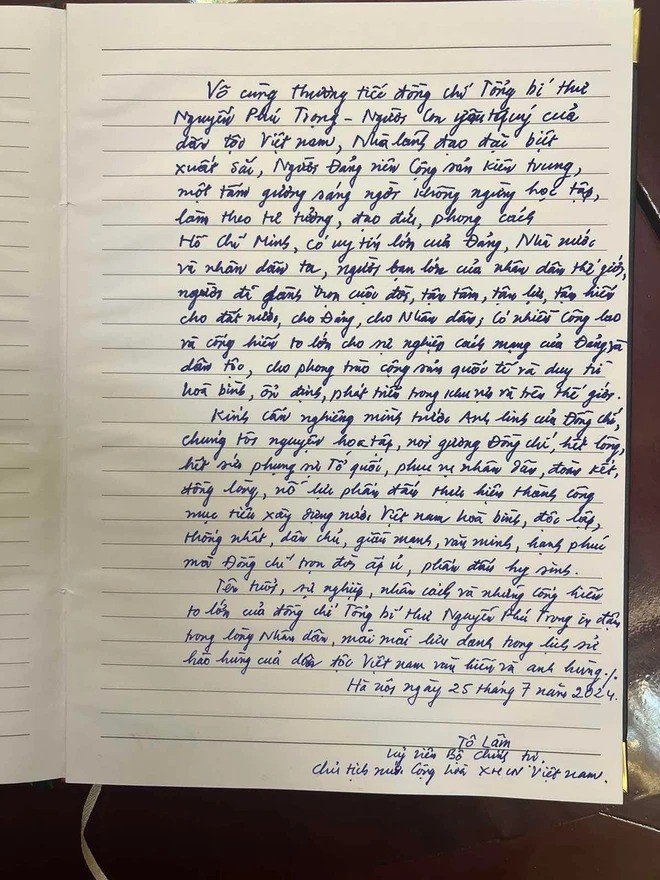 Vô cùng thương tiếc đồng chí Tổng bí thư
Nguyễn Phú Trọng - Người con yêu quý của
dân tộc Việt nam, Nhà lãnh đạo đặc biệt
xuất sắc, Người Đảng viên Cộng sản kiên trung,
một tấm gương sáng ngời không ngừng học tập,
làm theo tư tưởng, đạo đức, phong cách
Hồ Chí Minh, có uy tín lớn của Đảng, Nhà nước
và nhân dân ta, người bạn lớn của nhân dân thế giới,
người đã dành trọn cuộc đời, tận tâm, tận lực, tận hiến
cho đất nước, cho Đảng, cho Nhân dân; có nhiều công lao
và cống hiến to lớn cho sự nghiệp cách mạng của Đảng và
dân tộc, cho phong trào cộng sản quốc tế và duy trì
hoà bình, ổn định, phát triển trong khu vực và trên thế giới.
Kính cẩn nghiêng mình trước Anh linh của Đồng chí,
chúng tôi nguyện học tập, noi gương Đồng chí, hết lòng,
hết sức phụng sự Tổ quốc, phục vụ nhân dân, đoàn kết,
đồng lòng, nỗ lực phấn đấu thực hiện thành công
mục tiêu xây dựng nước Việt nam hoà bình, độc lập,
thống nhất, dân chủ, giàu mạnh, văn minh, hạnh phúc
mà Đồng chí trọn đời ấp ủ, phấn đấu hy sinh.
Tên tuổi, sự nghiệp, nhân cách và những cống hiến
to lớn của đồng chí Tổng bí thư Nguyễn Phú Trọng in đậm
trong lòng Nhân dân, mãi mãi lưu danh trong lịch sử
hào hùng của dân tộc Việt nam văn hiến và anh hùng./.
Hà nội ngày 25 tháng 7 năm 2024.
Tô Lâm
Uỷ viên Bộ Chính trị.
Chủ tịch nước Cộng hoà XHCN Việt nam.